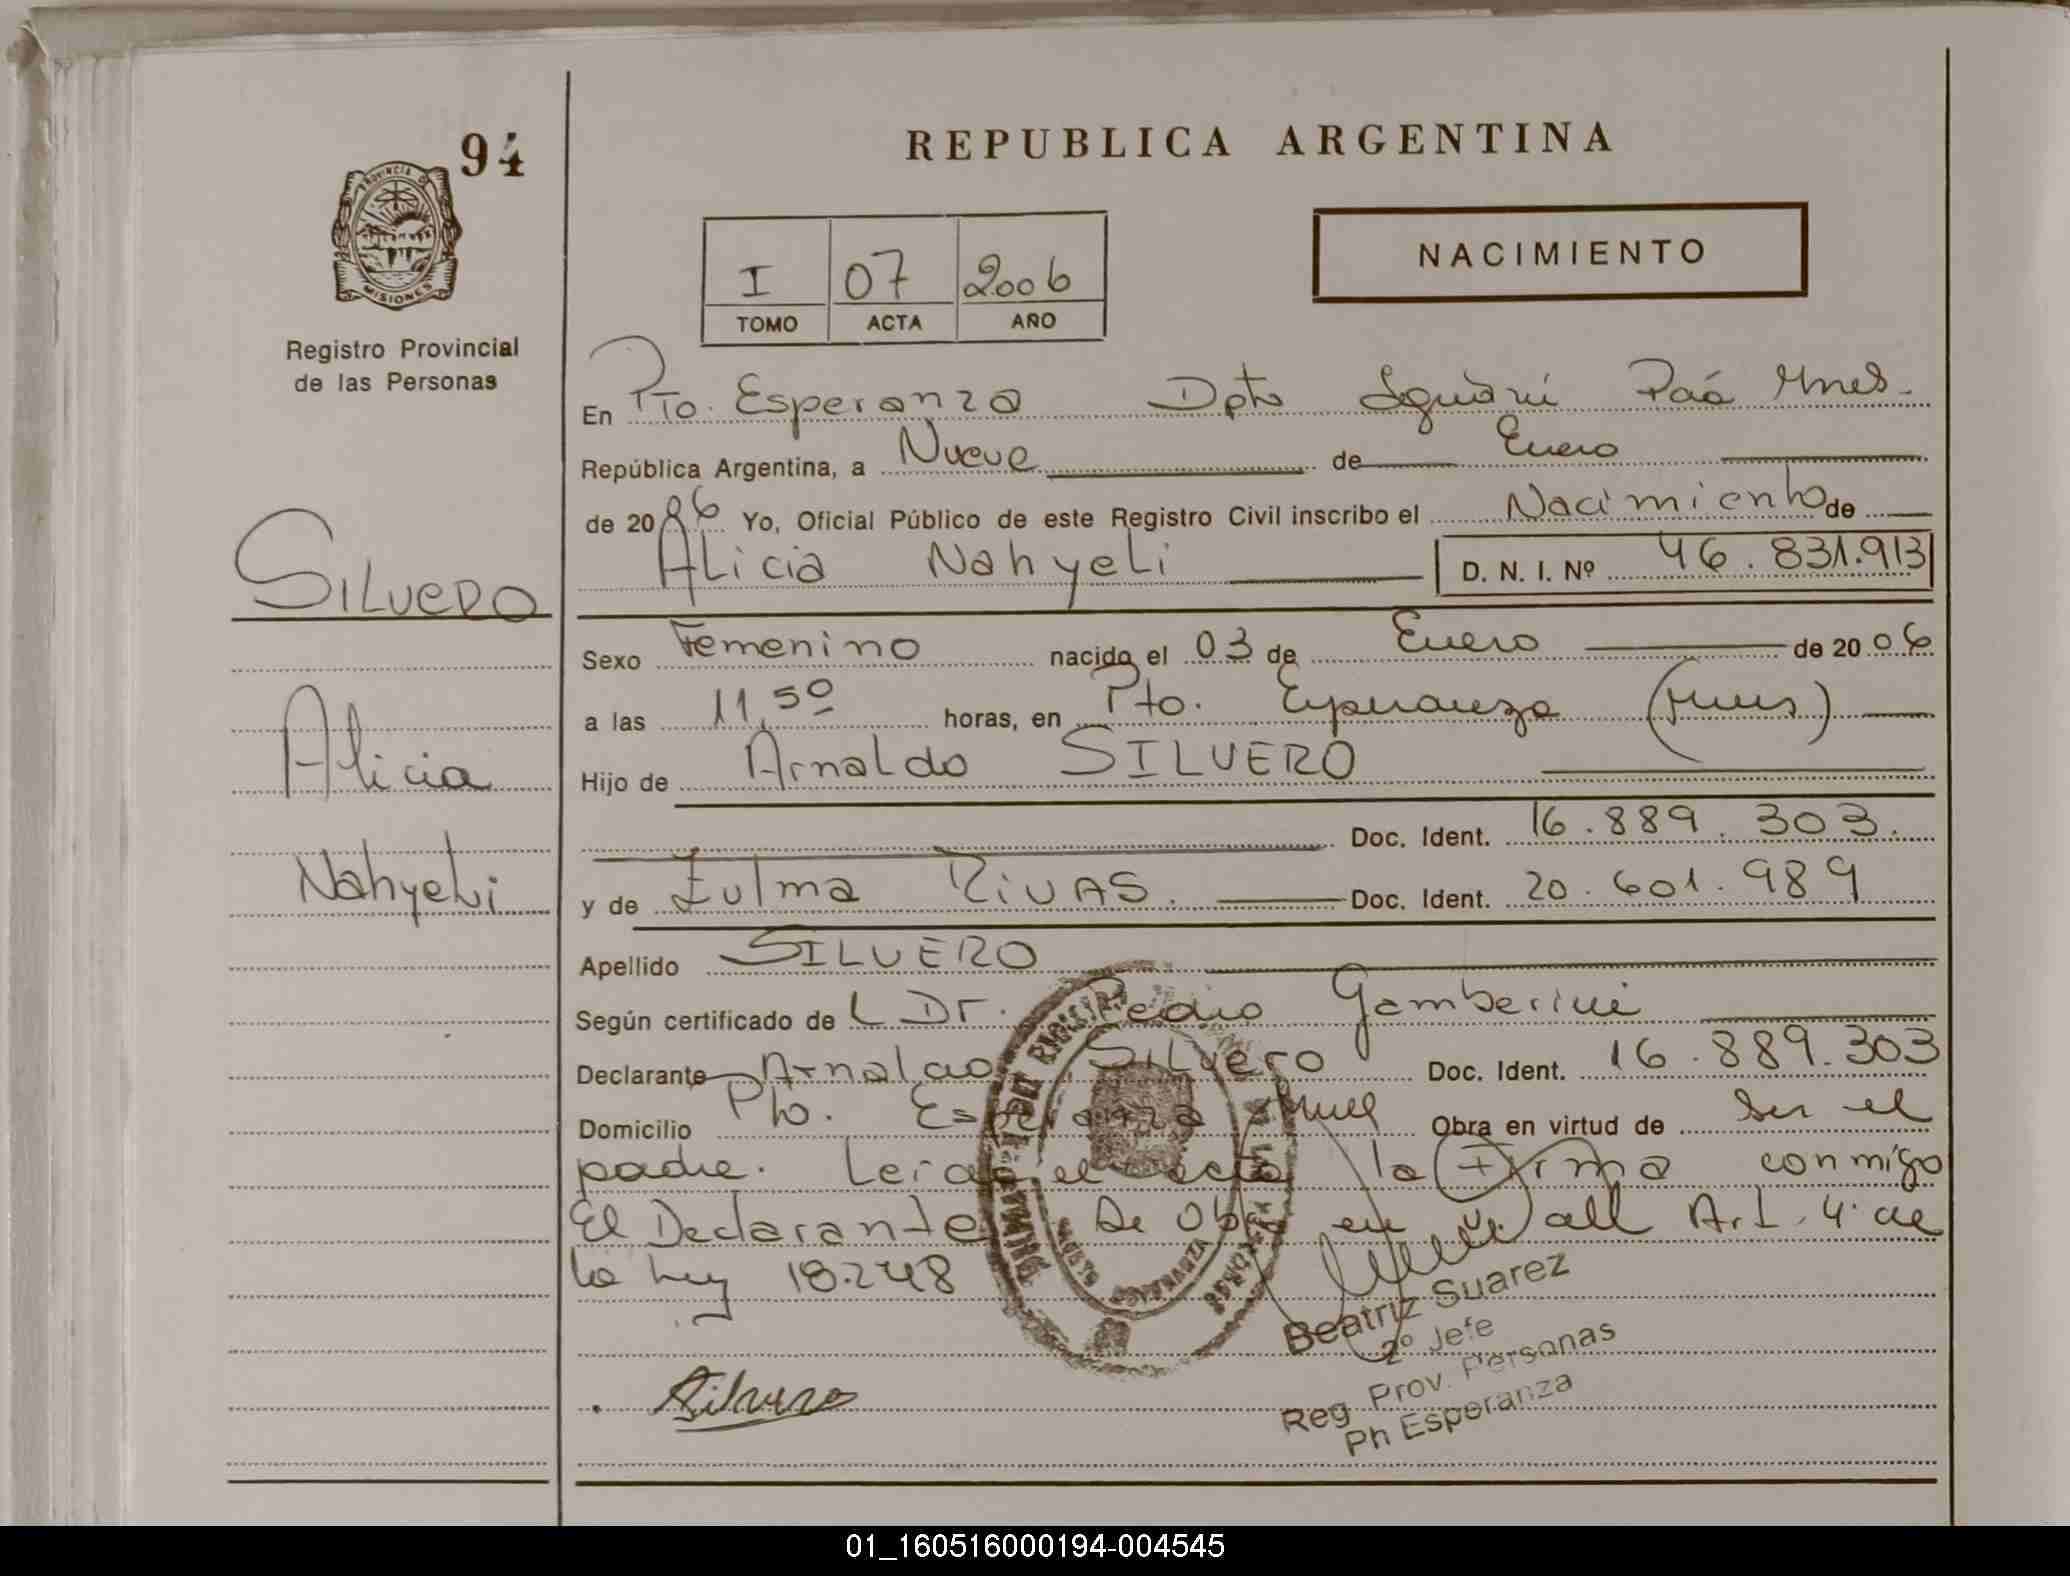 94
REPUBLICA ARGENTINA
PROVINCIA DE
MISIONES
Registro Provincial
de las Personas
I 07 2006
TOMO ACTA AÑO
NACIMIENTO
En Pto. Esperanza Dpto Iguazú Mnes.
República Argentina, a Nueve de Enero
de 2006 Yo, Oficial Público de este Registro Civil inscribo el Nacimiento de
Alicia Nahyeli D. N. I. Nº 46.831.913
SILVERO
Alicia
Nahyeli
Sexo Femenino nacido el 03 de Enero de 2006
a las 11,50 horas, en Pto. Esperanza (Mnes)
Hijo de Arnaldo SILVERO
Doc. Ident. 16.889.303.
y de Zulma RIVAS. Doc. Ident. 20.601.989
Apellido SILVERO
Según certificado de L Dr. Pedro Gamberini
Declarante Arnaldo Silvero Doc. Ident. 16.889.303
Domicilio Pto. Esperanza Mnes Obra en virtud de Ser el
padre. Leida el acta la Firma conmigo
El Declarante Se Obra en all Art. 4º de
la Ley 18.248
Silvero
Beatriz Suarez
2º Jefe
Reg Prov. Personas
Pto Esperanza
01_160516000194-004545